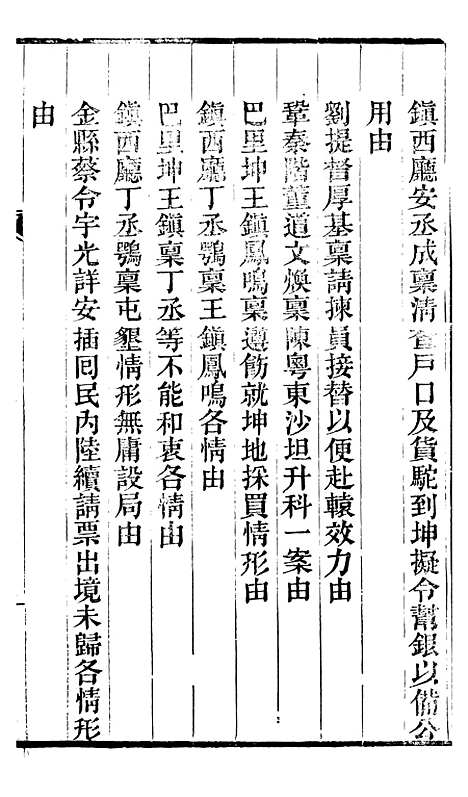 鎮西廳安丞成稟清查戶口及貨駝到坤擬令幫銀以備公
用由
劉提督厚基稟請揀員接替以便赴轅效力由
鞏秦階董道文煥稟陳粵東沙坦升科一案由
巴里坤王鎮鳳鳴稟遵飭就坤地採買情形由
鎮西廳丁丞鶚稟王鎮鳳鳴各情由
巴里坤王鎮稟丁丞等不能和衷各情由
鎮西廳丁丞鶚稟屯墾情形無庸設局由
金縣蔡令宇光詳安插囘民內陸續請票出境未歸各情形
由